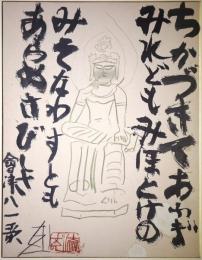 ちかづきてあふぎ
みれどもみほとけの
みそなはすとも
あらぬさびしさ
會津八一歌